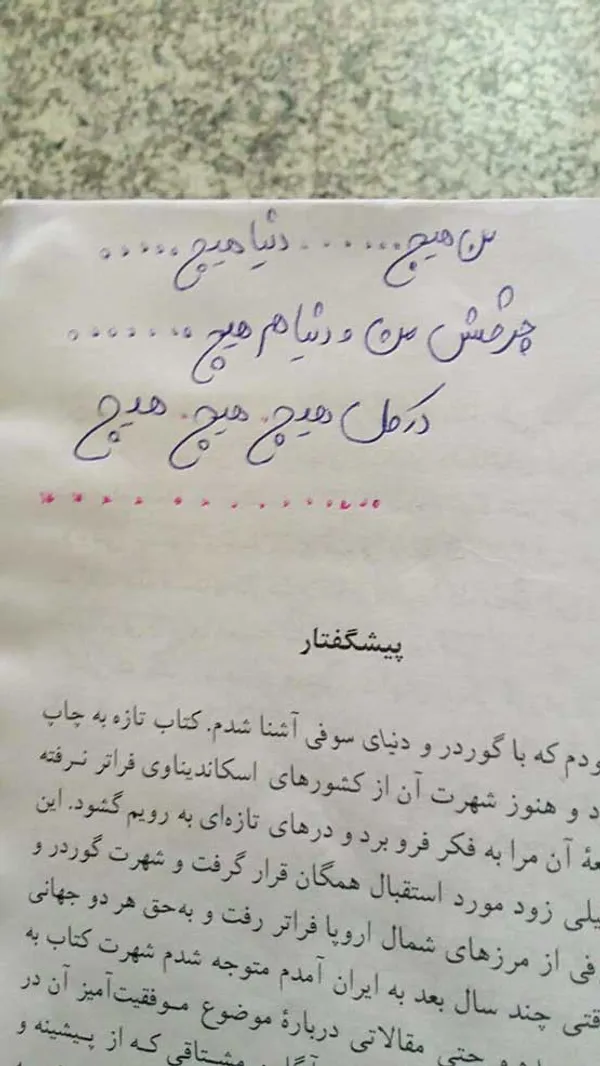 من هیچ...... دنیا هیچ.....
چرخش من و دنیا هم هیچ.......
در کل هیچ. هیچ. هیچ
پیشگفتار
ودم که با گوردر و دنیای سوفی آشنا شدم. کتاب تازه به چاپ
د و هنوز شهرت آن از کشورهای اسکاندیناوی فراتر نرفته
عهٔ آن مرا به فکر فرو برد و درهای تازه‌ای به رویم گشود. این
یلی زود مورد استقبال همگان قرار گرفت و شهرت گوردر و
فی از مرزهای شمال اروپا فراتر رفت و به‌حق هر دو جهانی
قتی چند سال بعد به ایران آمدم متوجه شدم شهرت کتاب به
ده و حتی مقالاتی دربارهٔ موضوع موفقیت‌آمیز آن در
مشتاقی که از پیشینه و